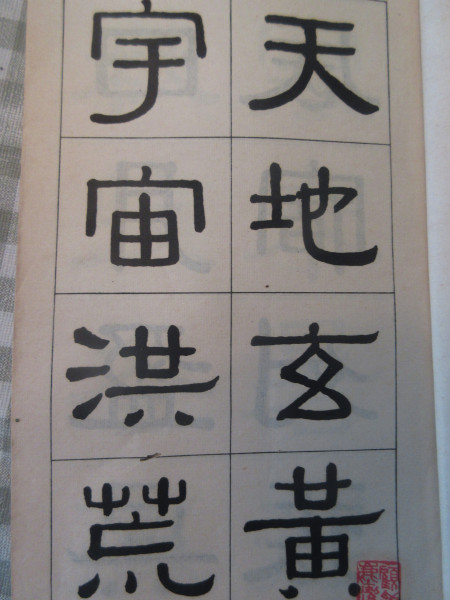 天地玄黃
宇宙洪荒